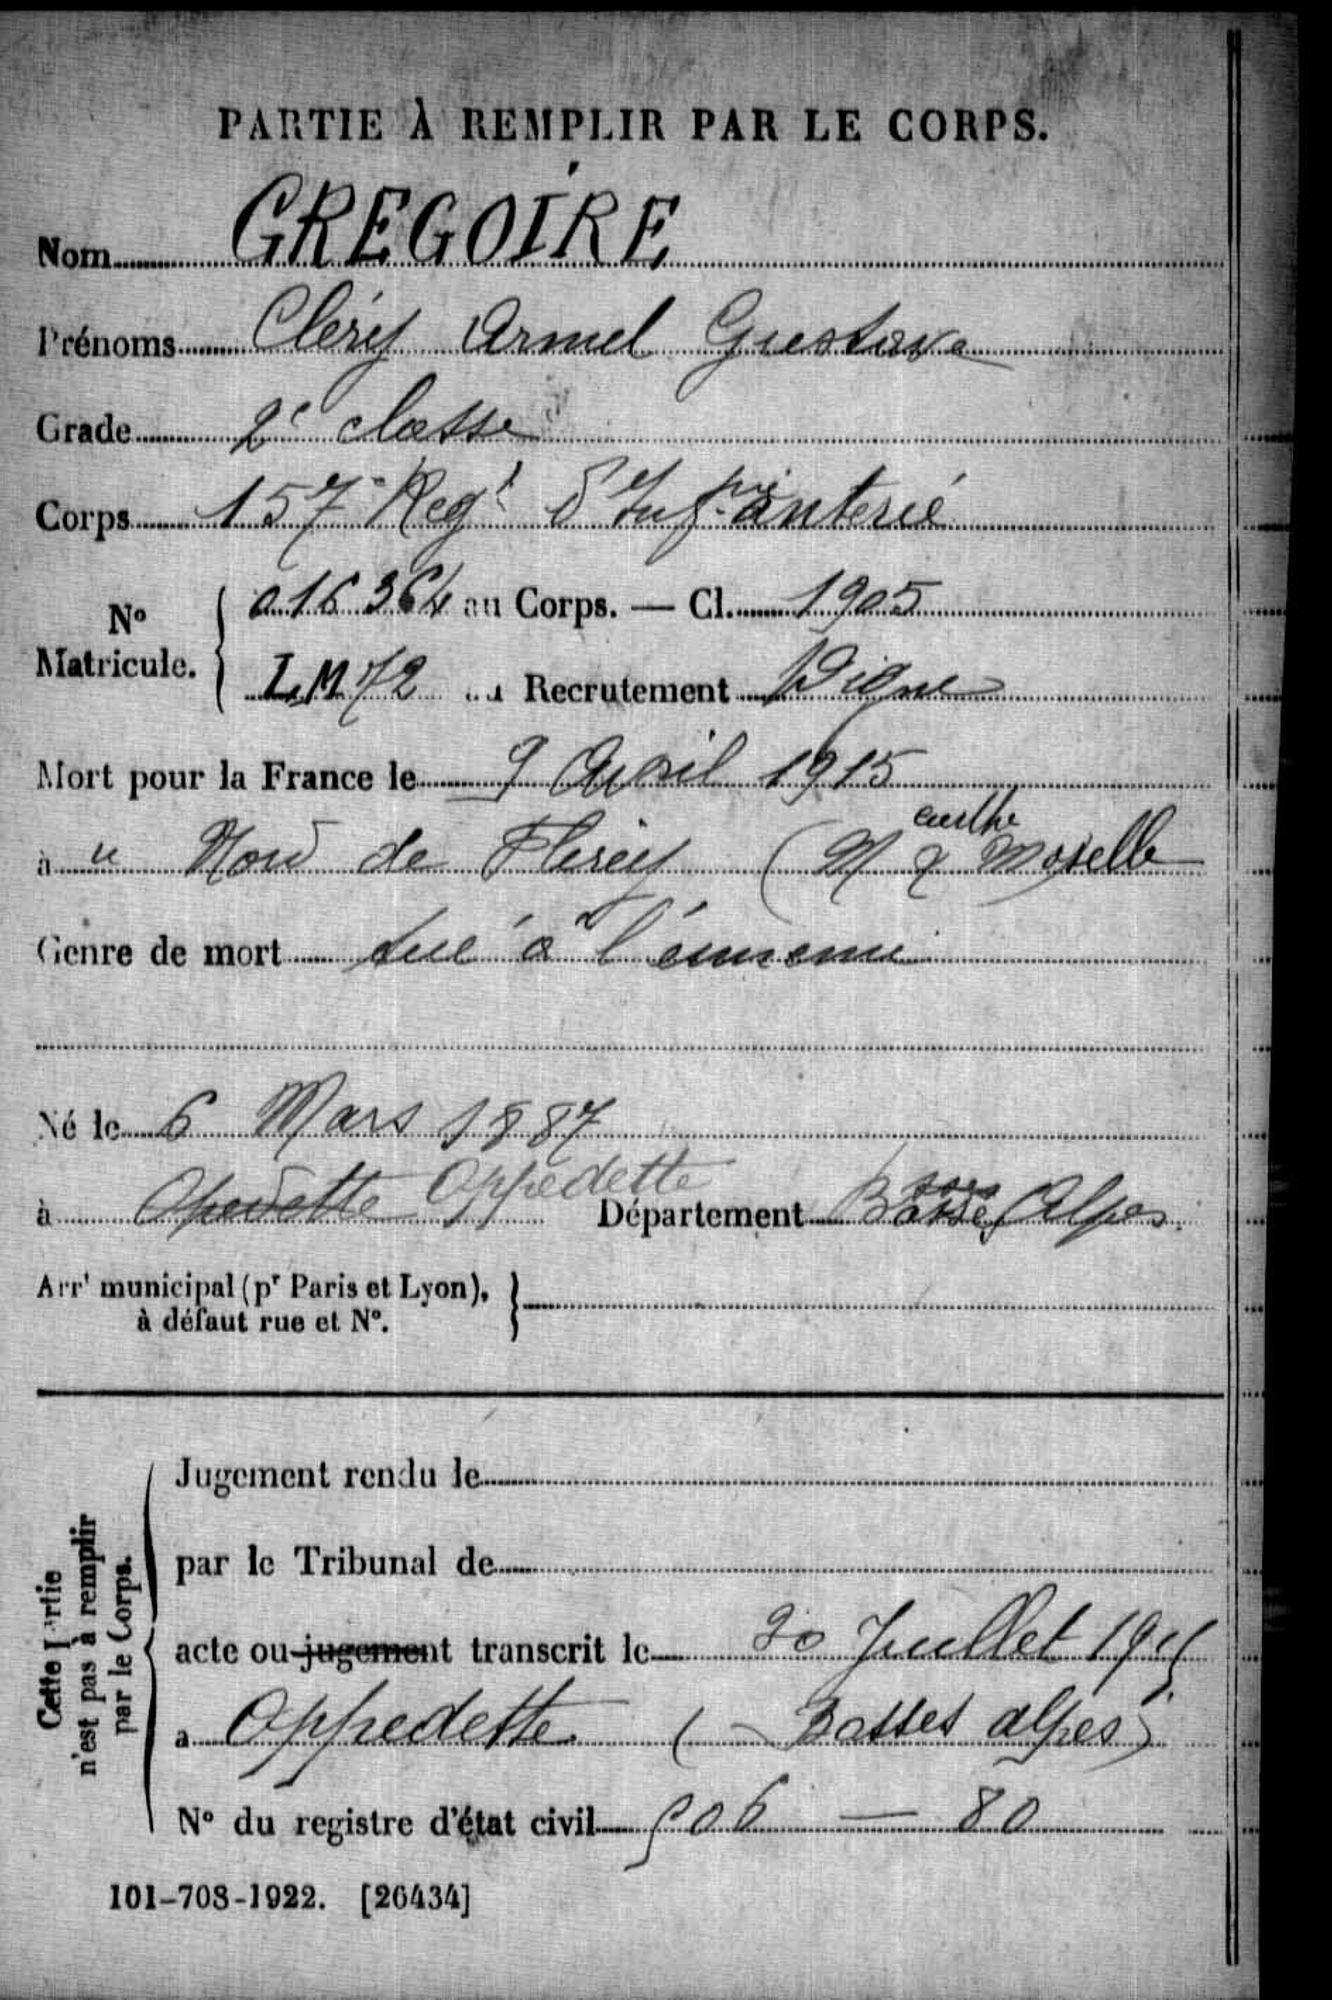 PARTIE À REMPLIR PAR LE CORPS.
Nom GREGOIRE
Prénoms Cléry Armel Gustave
Grade 2e classe
Corps 157e Regt d'Infanterie
No Matricule. { 016364 au Corps. — Cl. 1905
LM 72 au Recrutement Digne
Mort pour la France le 9 Avril 1915
à u Nord de Flirey (Meurthe & Moselle
Genre de mort tué à l'ennemi
Né le 6 Mars 1887
à Opedette Oppedette Département Basses Alpes.
Arrt municipal (pr Paris et Lyon), à défaut rue et No. }
Cette partie n'est pas à remplir par le Corps.
Jugement rendu le
par le Tribunal de
acte ou jugement transcrit le 30 Juillet 1915
a Oppedette (Basses alpes)
No du registre d'état civil 506 — 80
101-708-1922. [26434]